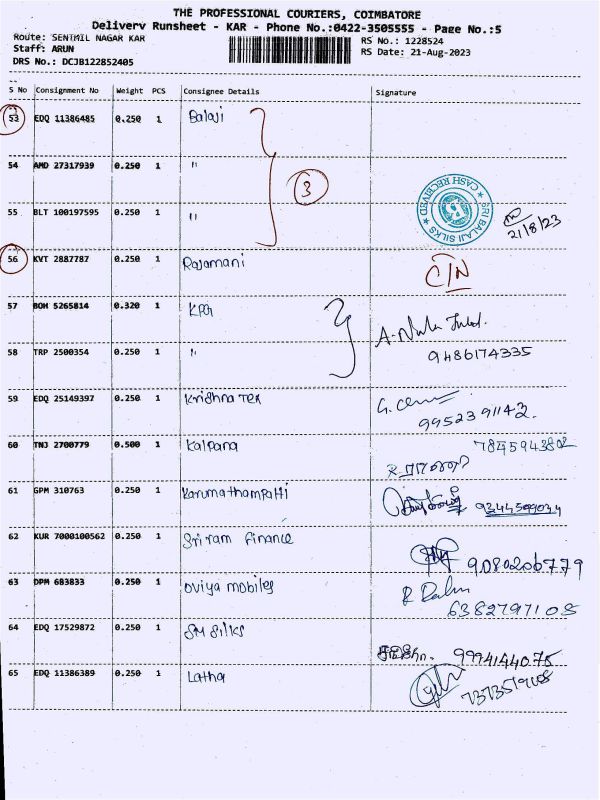 THE PROFESSIONAL COURIERS, COIMBATORE
Delivery Runsheet - KAR - Phone No.:0422-3505555 - Page No.:5
Route: SENTHIL NAGAR KAR RS No.: 1228524
Staff: ARUN RS Date: 21-Aug-2023
DRS No.: DCJB122852405
S No Consignment No Weight PCS Consignee Details Signature
53 EDQ 11386485 0.250 1 Balaji
54 AMD 27317939 0.250 1 "
3
SRI BALAJI SILKS
CASH RECEIVED
55 BLT 100197595 0.250 1 "
21/8/23
56 KVT 2887787 0.250 1 Rajamani C/N
57 BOM 5265814 0.320 1 KPG
58 TRP 2500354 0.250 1 " 9486174335
59 EDQ 25149397 0.250 1 Krishna Tex
9952391142.
60 TNJ 2700779 0.500 1 Kalpana
61 GPM 310763 0.250 1 Karumathampatti 9344599034
62 KUR 7000100562 0.250 1 Sri ram finance
9080206779
63 DPM 683833 0.250 1 Oviya mobiles
6382797108
64 EDQ 17529872 0.250 1 SM Silks
9994144075
65 EDQ 11386389 0.250 1 Latha